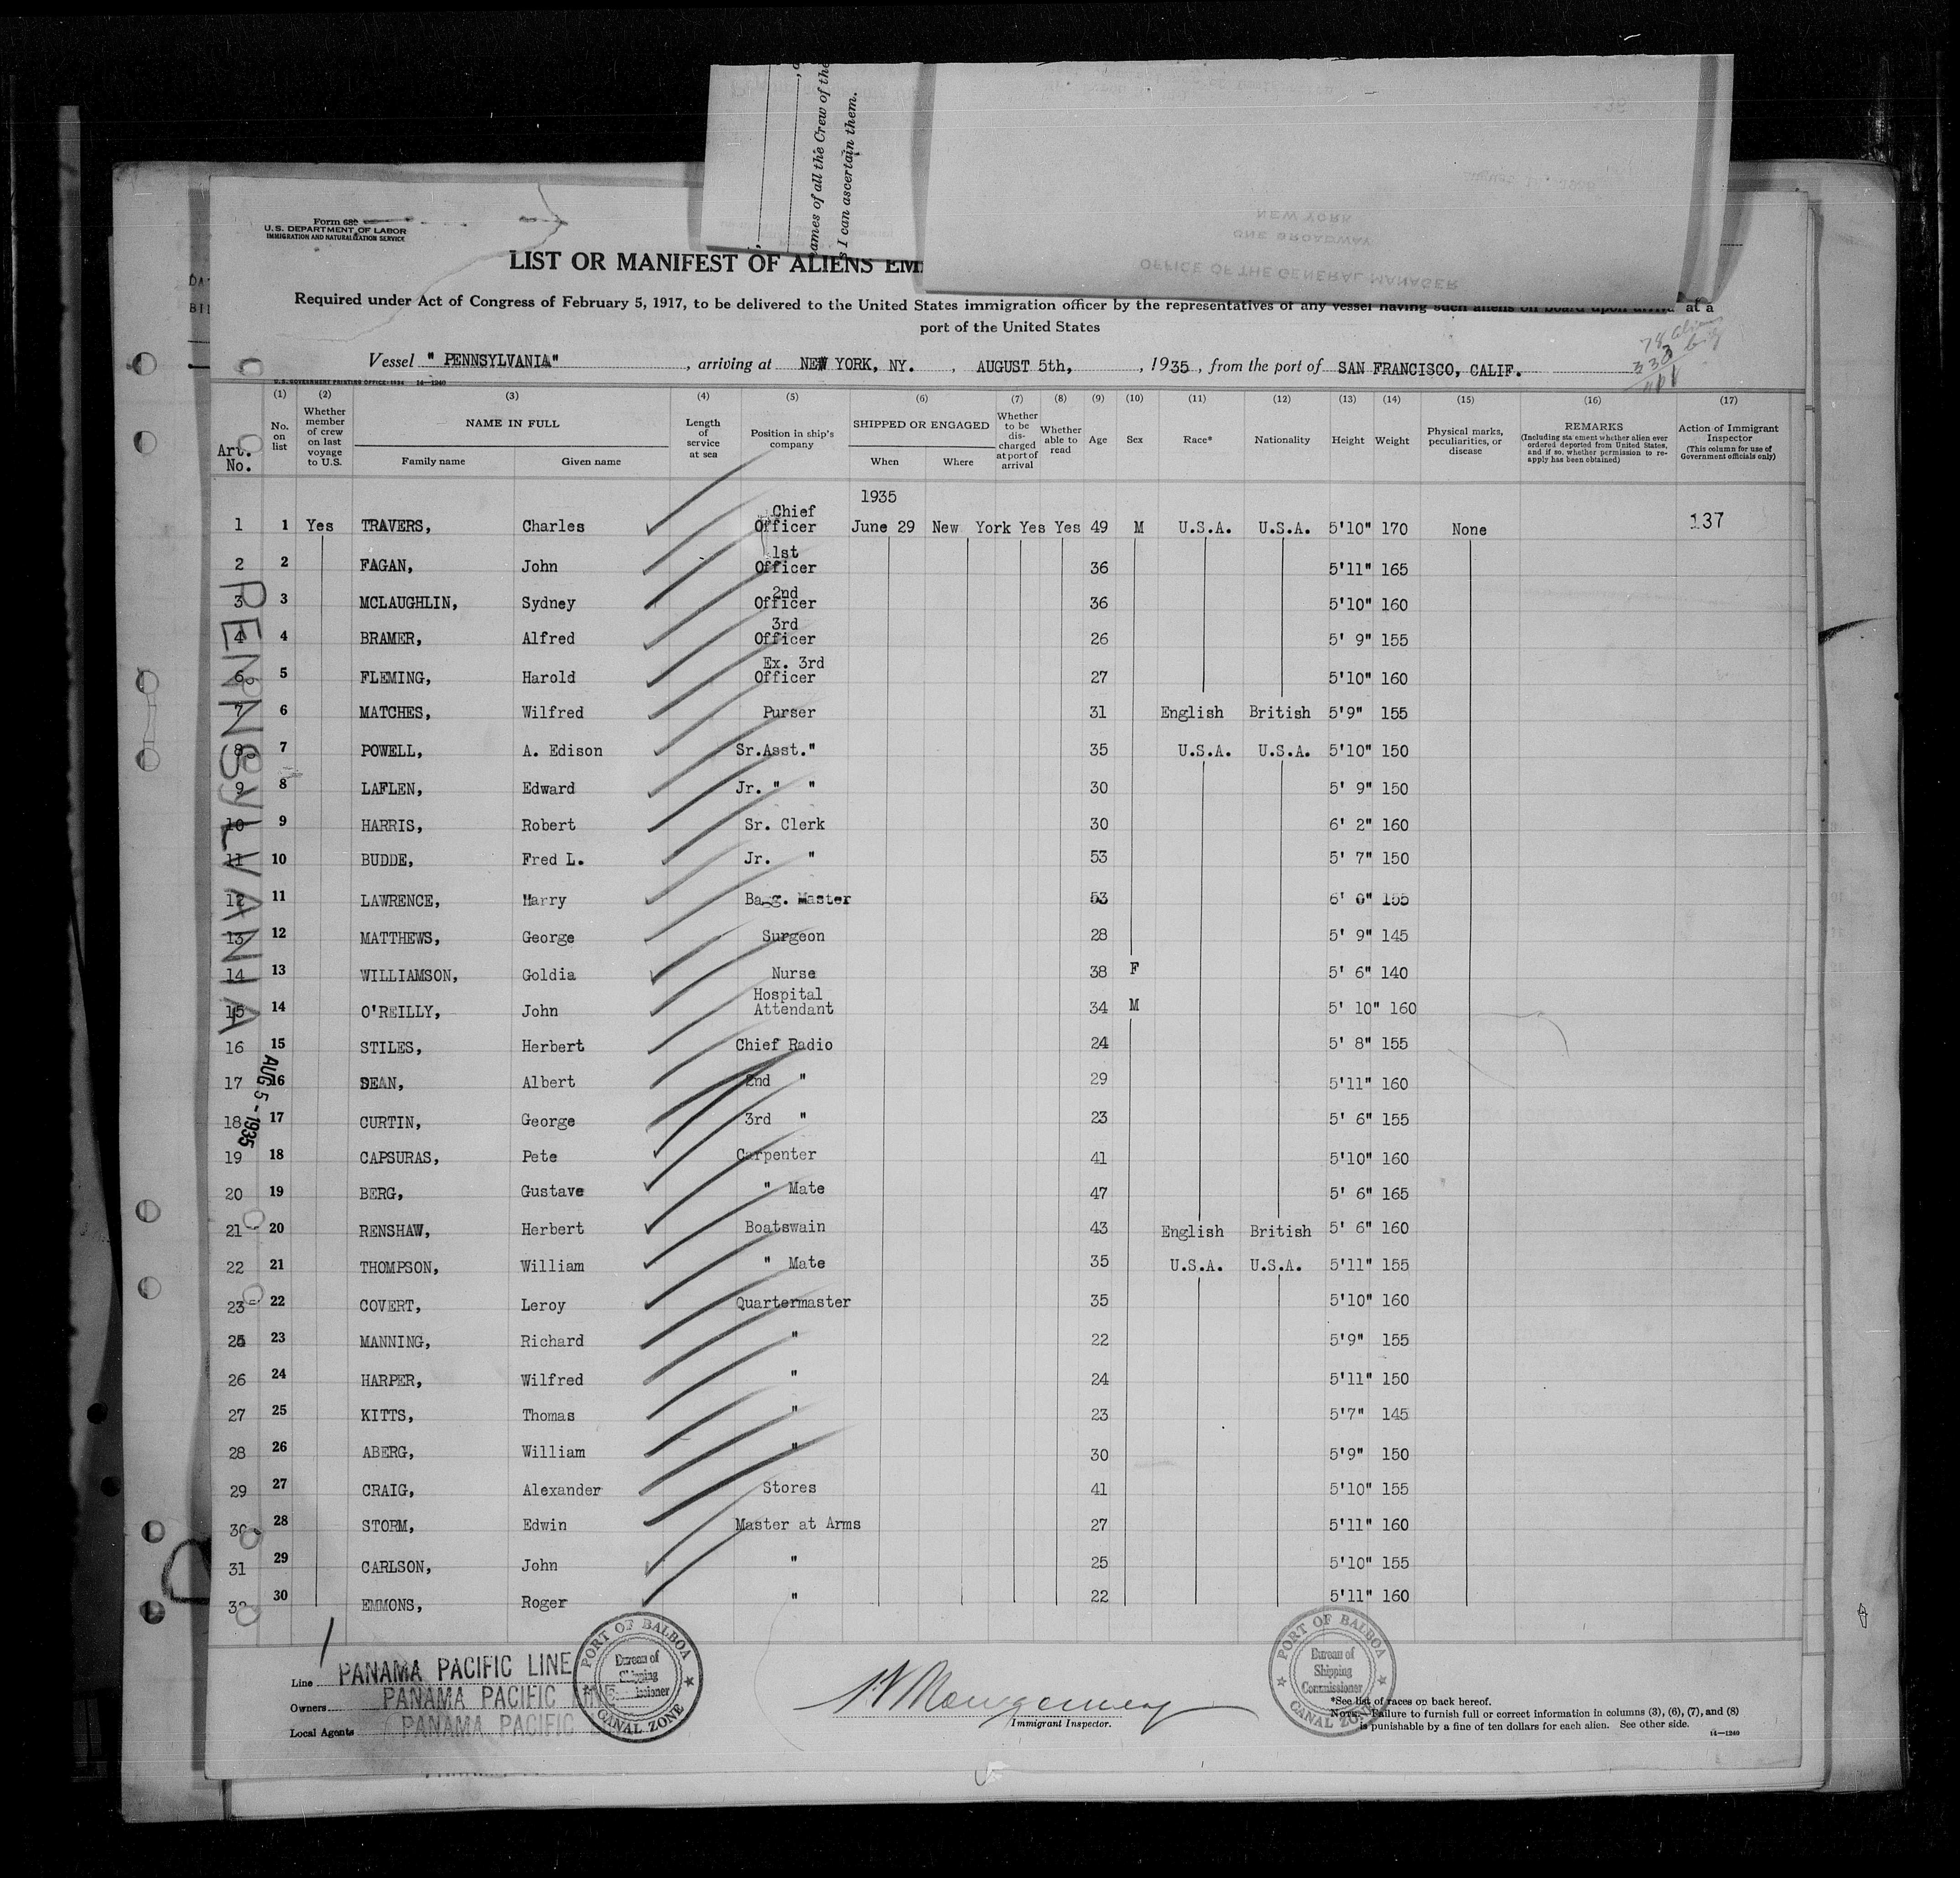 ames of all the Crew of the
s I can ascertain them.
NEW YORK
ONE BROADWAY
OFFICE OF THE GENERAL MANAGER
Form 680
U.S. DEPARTMENT OF LABOR
IMMIGRATION AND NATURALIZATION SERVICE
LIST OR MANIFEST OF ALIENS EM
Required under Act of Congress of February 5, 1917, to be delivered to the United States immigration officer by the representatives of any vessel having such aliens on board upon arrival at a
port of the United States
Vessel "PENNSYLVANIA", arriving at NEW YORK, NY., AUGUST 5th, 1935, from the port of SAN FRANCISCO, CALIF.
78 aliens
U.S. GOVERNMENT PRINTING OFFICE: 1934 14—1240
(1) (2) (3) (4) (5) (6) (7) (8) (9) (10) (11) (12) (13) (14) (15) (16) (17)
Art. No. | No. on list | Whether member of crew on last voyage to U.S. | NAME IN FULL Family name Given name | Length of service at sea | Position in ship's company | SHIPPED OR ENGAGED When Where | Whether to be discharged at port of arrival | Whether able to read | Age | Sex | Race* | Nationality | Height | Weight | Physical marks, peculiarities, or disease | REMARKS (Including statement whether alien ever ordered deported from United States, and if so, whether permission to reapply has been obtained) | Action of Immigrant Inspector (This column for use of Government officials only)
1935
1 1 Yes TRAVERS, Charles Chief Officer June 29 New York Yes Yes 49 M U.S.A. U.S.A. 5'10" 170 None 137
2 2 FAGAN, John 1st Officer 36 5'11" 165
3 3 MCLAUGHLIN, Sydney 2nd Officer 36 5'10" 160
4 4 BRAMER, Alfred 3rd Officer 26 5' 9" 155
6 5 FLEMING, Harold Ex. 3rd Officer 27 5'10" 160
7 6 MATCHES, Wilfred Purser 31 English British 5'9" 155
8 7 POWELL, A. Edison Sr.Asst." 35 U.S.A. U.S.A. 5'10" 150
9 8 LAFLEN, Edward Jr. " " 30 5' 9" 150
10 9 HARRIS, Robert Sr. Clerk 30 6' 2" 160
11 10 BUDDE, Fred L. Jr. " 53 5' 7" 150
12 11 LAWRENCE, Harry Bagg. Master 53 6' 0" 155
13 12 MATTHEWS, George Surgeon 28 5' 9" 145
14 13 WILLIAMSON, Goldia Nurse 38 F 5' 6" 140
15 14 O'REILLY, John Hospital Attendant 34 M 5' 10" 160
16 15 STILES, Herbert Chief Radio 24 5' 8" 155
17 16 DEAN, Albert 2nd " 29 5'11" 160
18 17 CURTIN, George 3rd " 23 5' 6" 155
19 18 CAPSURAS, Pete Carpenter 41 5'10" 160
20 19 BERG, Gustave " Mate 47 5' 6" 165
21 20 RENSHAW, Herbert Boatswain 43 English British 5' 6" 160
22 21 THOMPSON, William " Mate 35 U.S.A. U.S.A. 5'11" 155
23 22 COVERT, Leroy Quartermaster 35 5'10" 160
25 23 MANNING, Richard " 22 5'9" 155
26 24 HARPER, Wilfred " 24 5'11" 150
27 25 KITTS, Thomas " 23 5'7" 145
28 26 ABERG, William " 30 5'9" 150
29 27 CRAIG, Alexander Stores 41 5'10" 155
30 28 STORM, Edwin Master at Arms 27 5'11" 160
31 29 CARLSON, John " 25 5'10" 155
32 30 EMMONS, Roger " 22 5'11" 160
PENNSYLVANIA
AUG 5 - 1935
Line PANAMA PACIFIC LINE
Owners PANAMA PACIFIC LINE
Local Agents PANAMA PACIFIC
PORT OF BALBOA
Bureau of
Shipping
Commissioner
CANAL ZONE
Montgomery
Immigrant Inspector.
PORT OF BALBOA
Bureau of
Shipping
Commissioner
CANAL ZONE
*See list of races on back hereof.
NOTE.—Failure to furnish full or correct information in columns (3), (6), (7), and (8)
is punishable by a fine of ten dollars for each alien. See other side.
14—1240